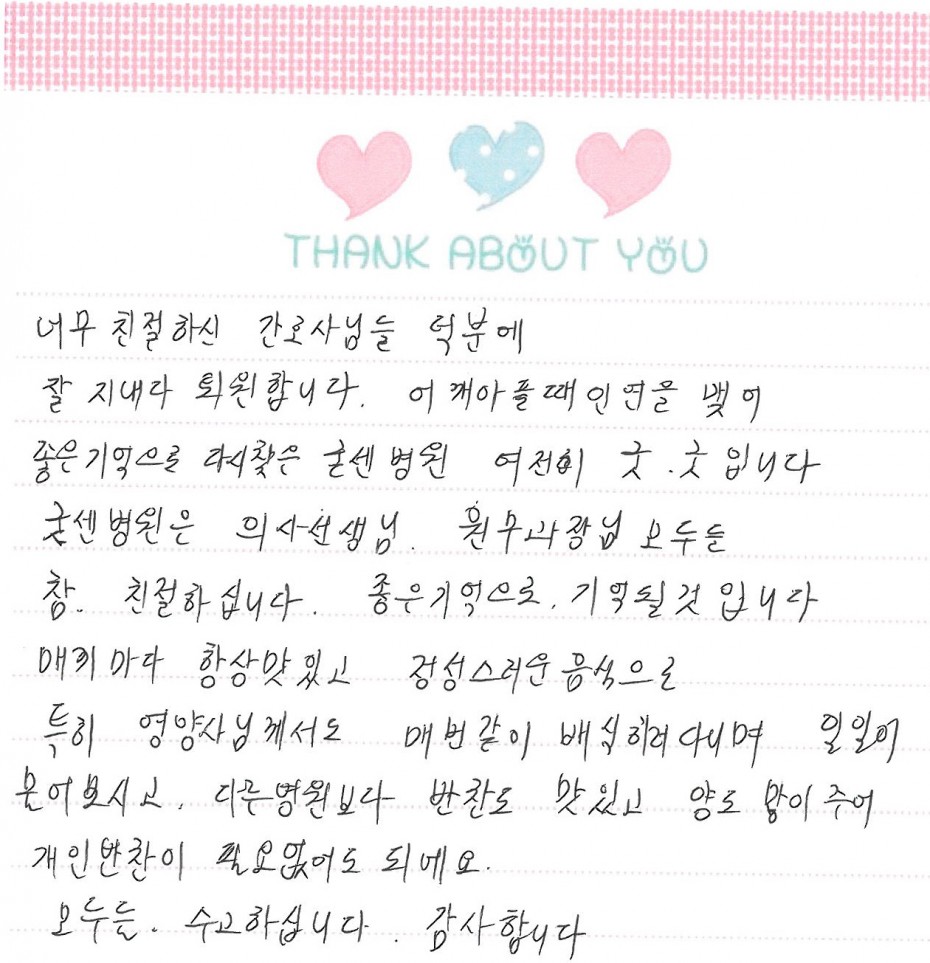 THANK ABOUT YOU
너무 친절하신 간호사님들 덕분에
잘 지내다 퇴원합니다. 어깨아플때 인연을 맺어
좋은기억으로 다시찾은 굳센병원 여전히 굿.굿입니다
굳센병원은 의사선생님. 원무과장님 모두들
참. 친절하십니다. 좋은기억으로. 기억될것입니다
매끼마다 항상맛있고 정성스러운음식으로
특히 영양사님께서도 매번같이 배식하러다니며 일일이
물어보시고. 다른병원보다 반찬도 맛있고 양도 많이주어
개인반찬이 필요없어도 되네요.
모두들. 수고하십니다. 감사합니다